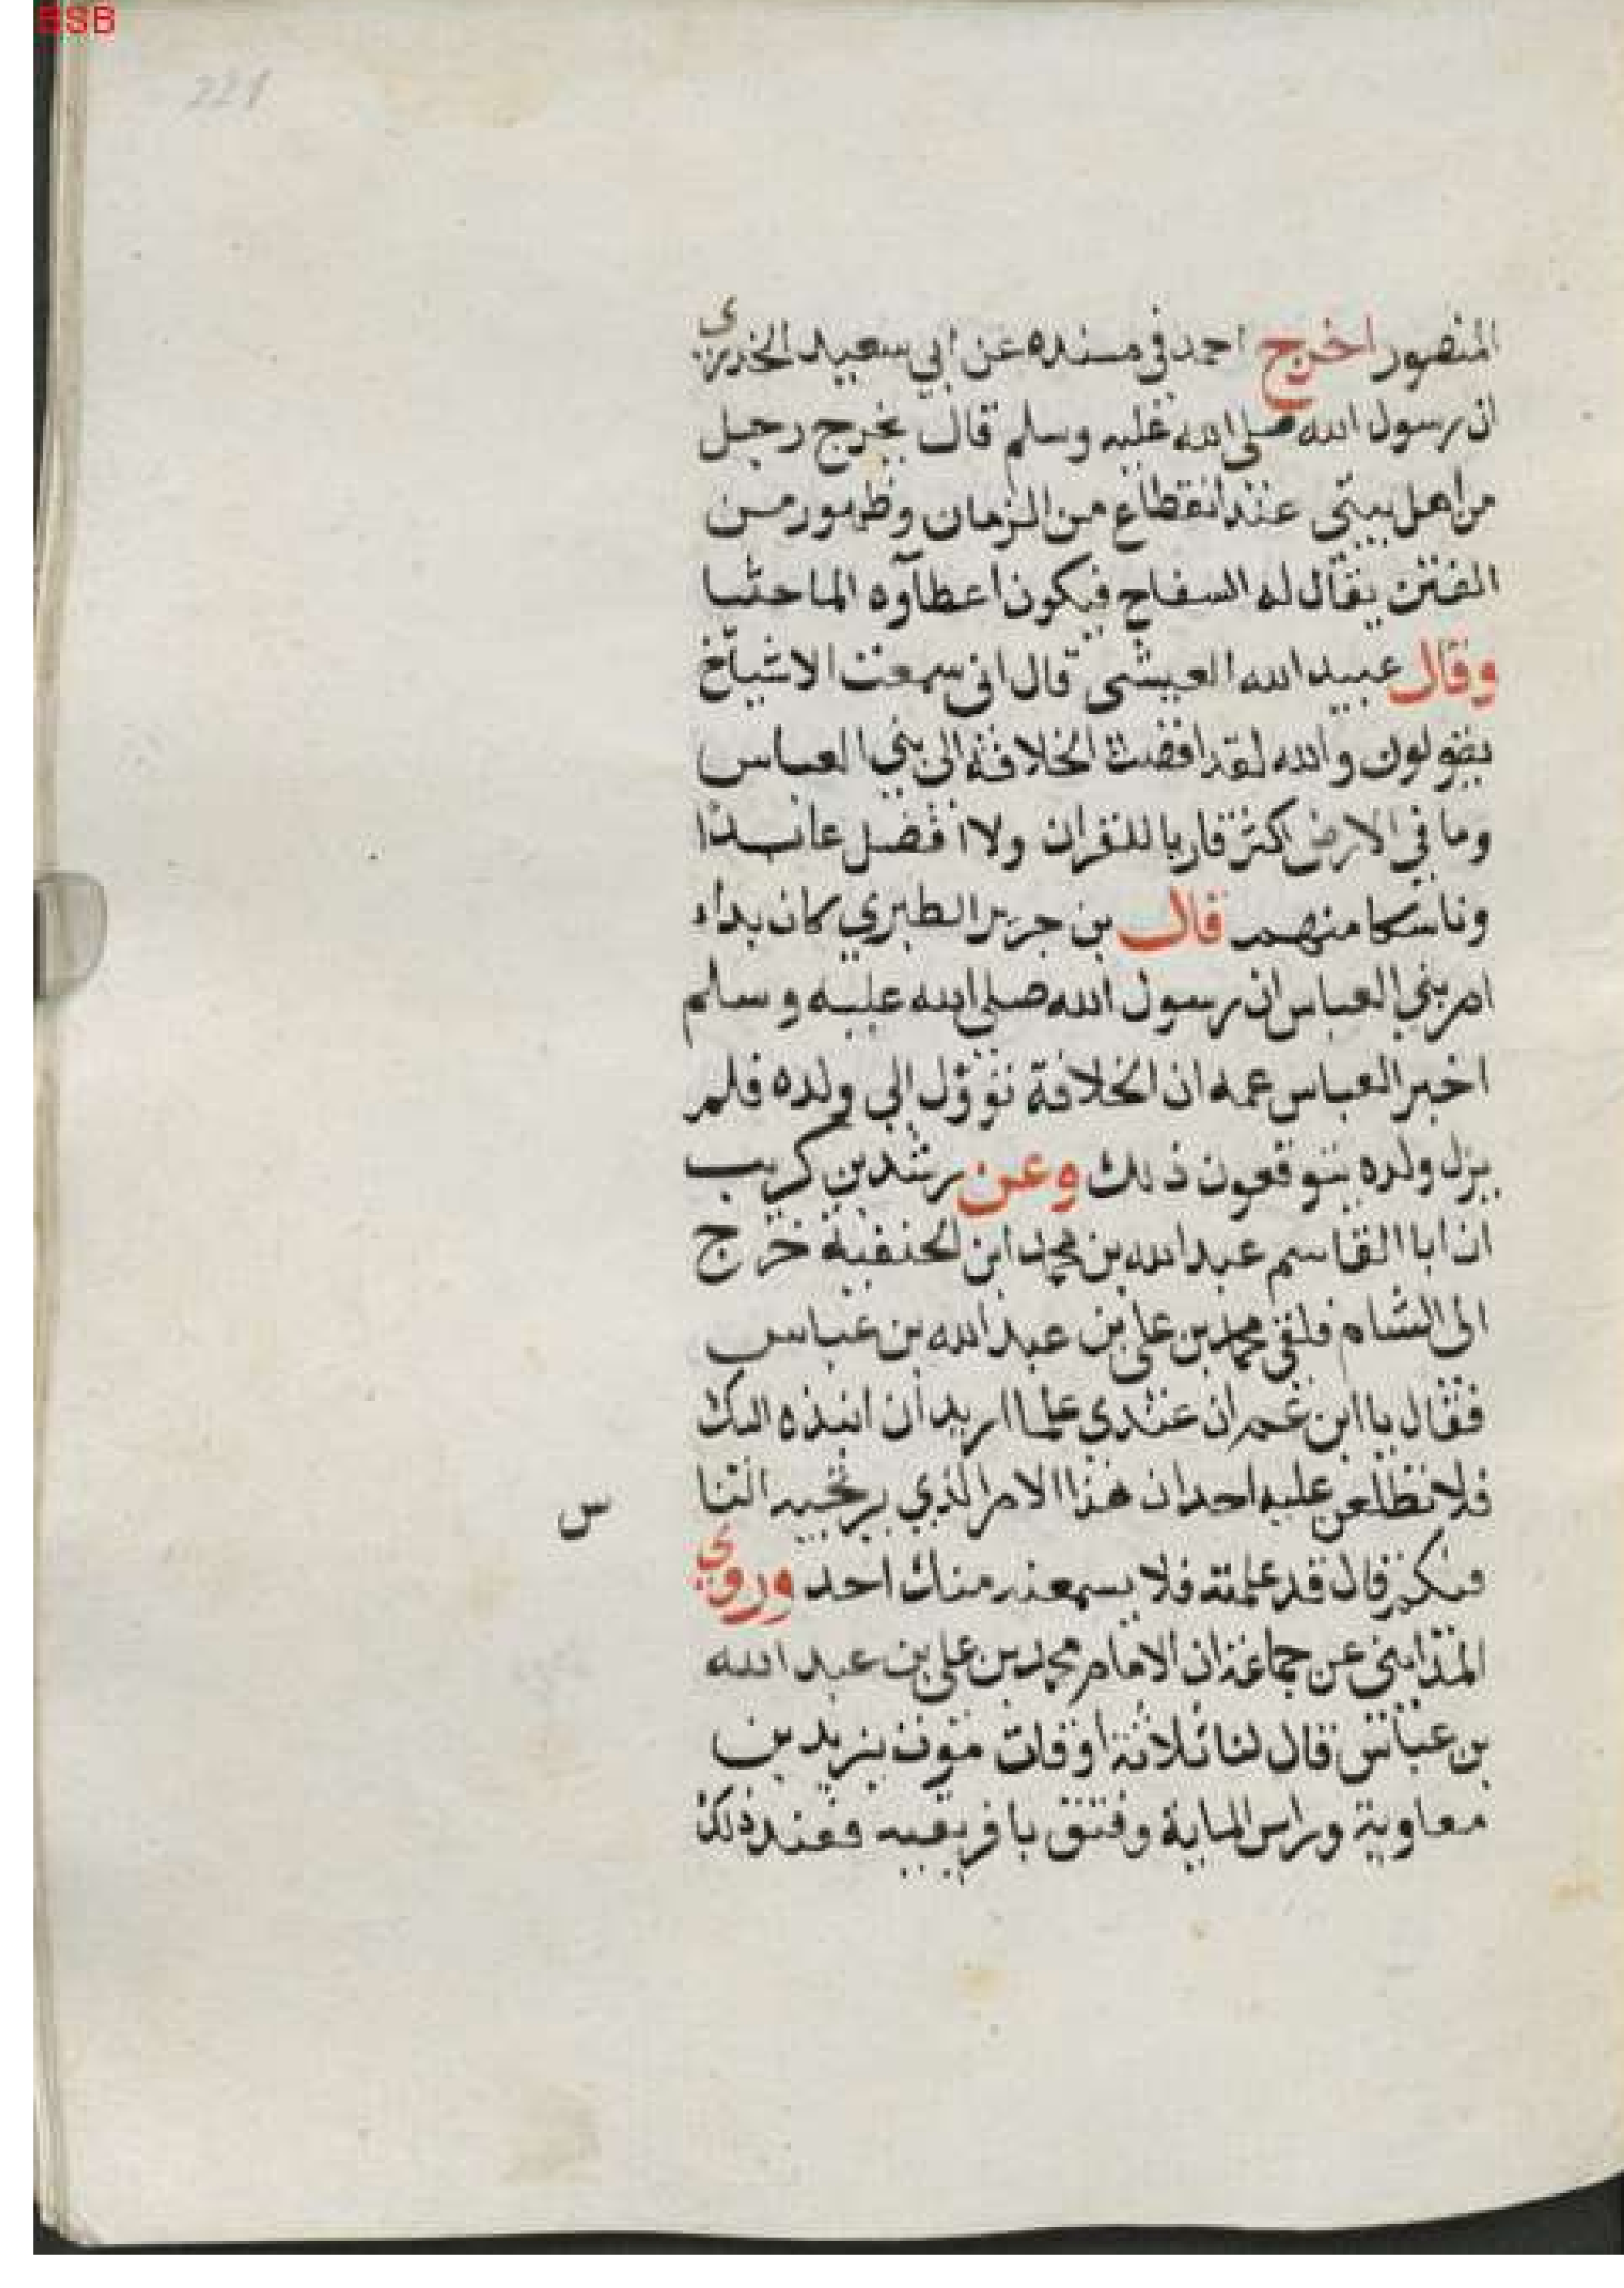 BSB
221
المنصور اخرج احمد في مسنده عن ابي سعيد الخدري
ان رسول الله صلى الله عليه وسلم قال يخرج رجل
من اهل بيتي عند انقطاع من الزمان وظهور من
الفتن يقال له السفاح فيكون اعطاوه الما حثيا
وقال عبيد الله العيشى قال اني سمعت الاشياخ
يقولون والله لقد افضت الخلافة الى بني العباس
وما في الارض اكثر قاريا للقران ولا افضل عابدا
وناسكا منهم قال بن جرير الطبري كان بداء
امر بني العباس ان رسول الله صلى الله عليه وسلم
اخبر العباس عمه ان الخلافة تؤول الى ولده فلم
يزل ولده يتوقعون ذلك وعن رشد بن كريب
ان ابا القاسم عبد الله بن محمد ابن الحنفية خرج
الى الشام فلقى محمد بن على بن عبد الله بن عباس
فقال يا ابن عم ان عندي علما اريد ان انبذه اليك
فلا تطلعن عليه احد ان هذا الامر الذي يرتجيه النا
س
فيكم قال قد علمته فلا يسمعنه منك احد وروي
المدايني عن جماعة ان الامام محمد بن على بن عبد الله
بن عباس قال لنا ثلاثة اوقات موت يزيد بن
معاوية وراس الماية وفتق بافريقيه فعند ذلك